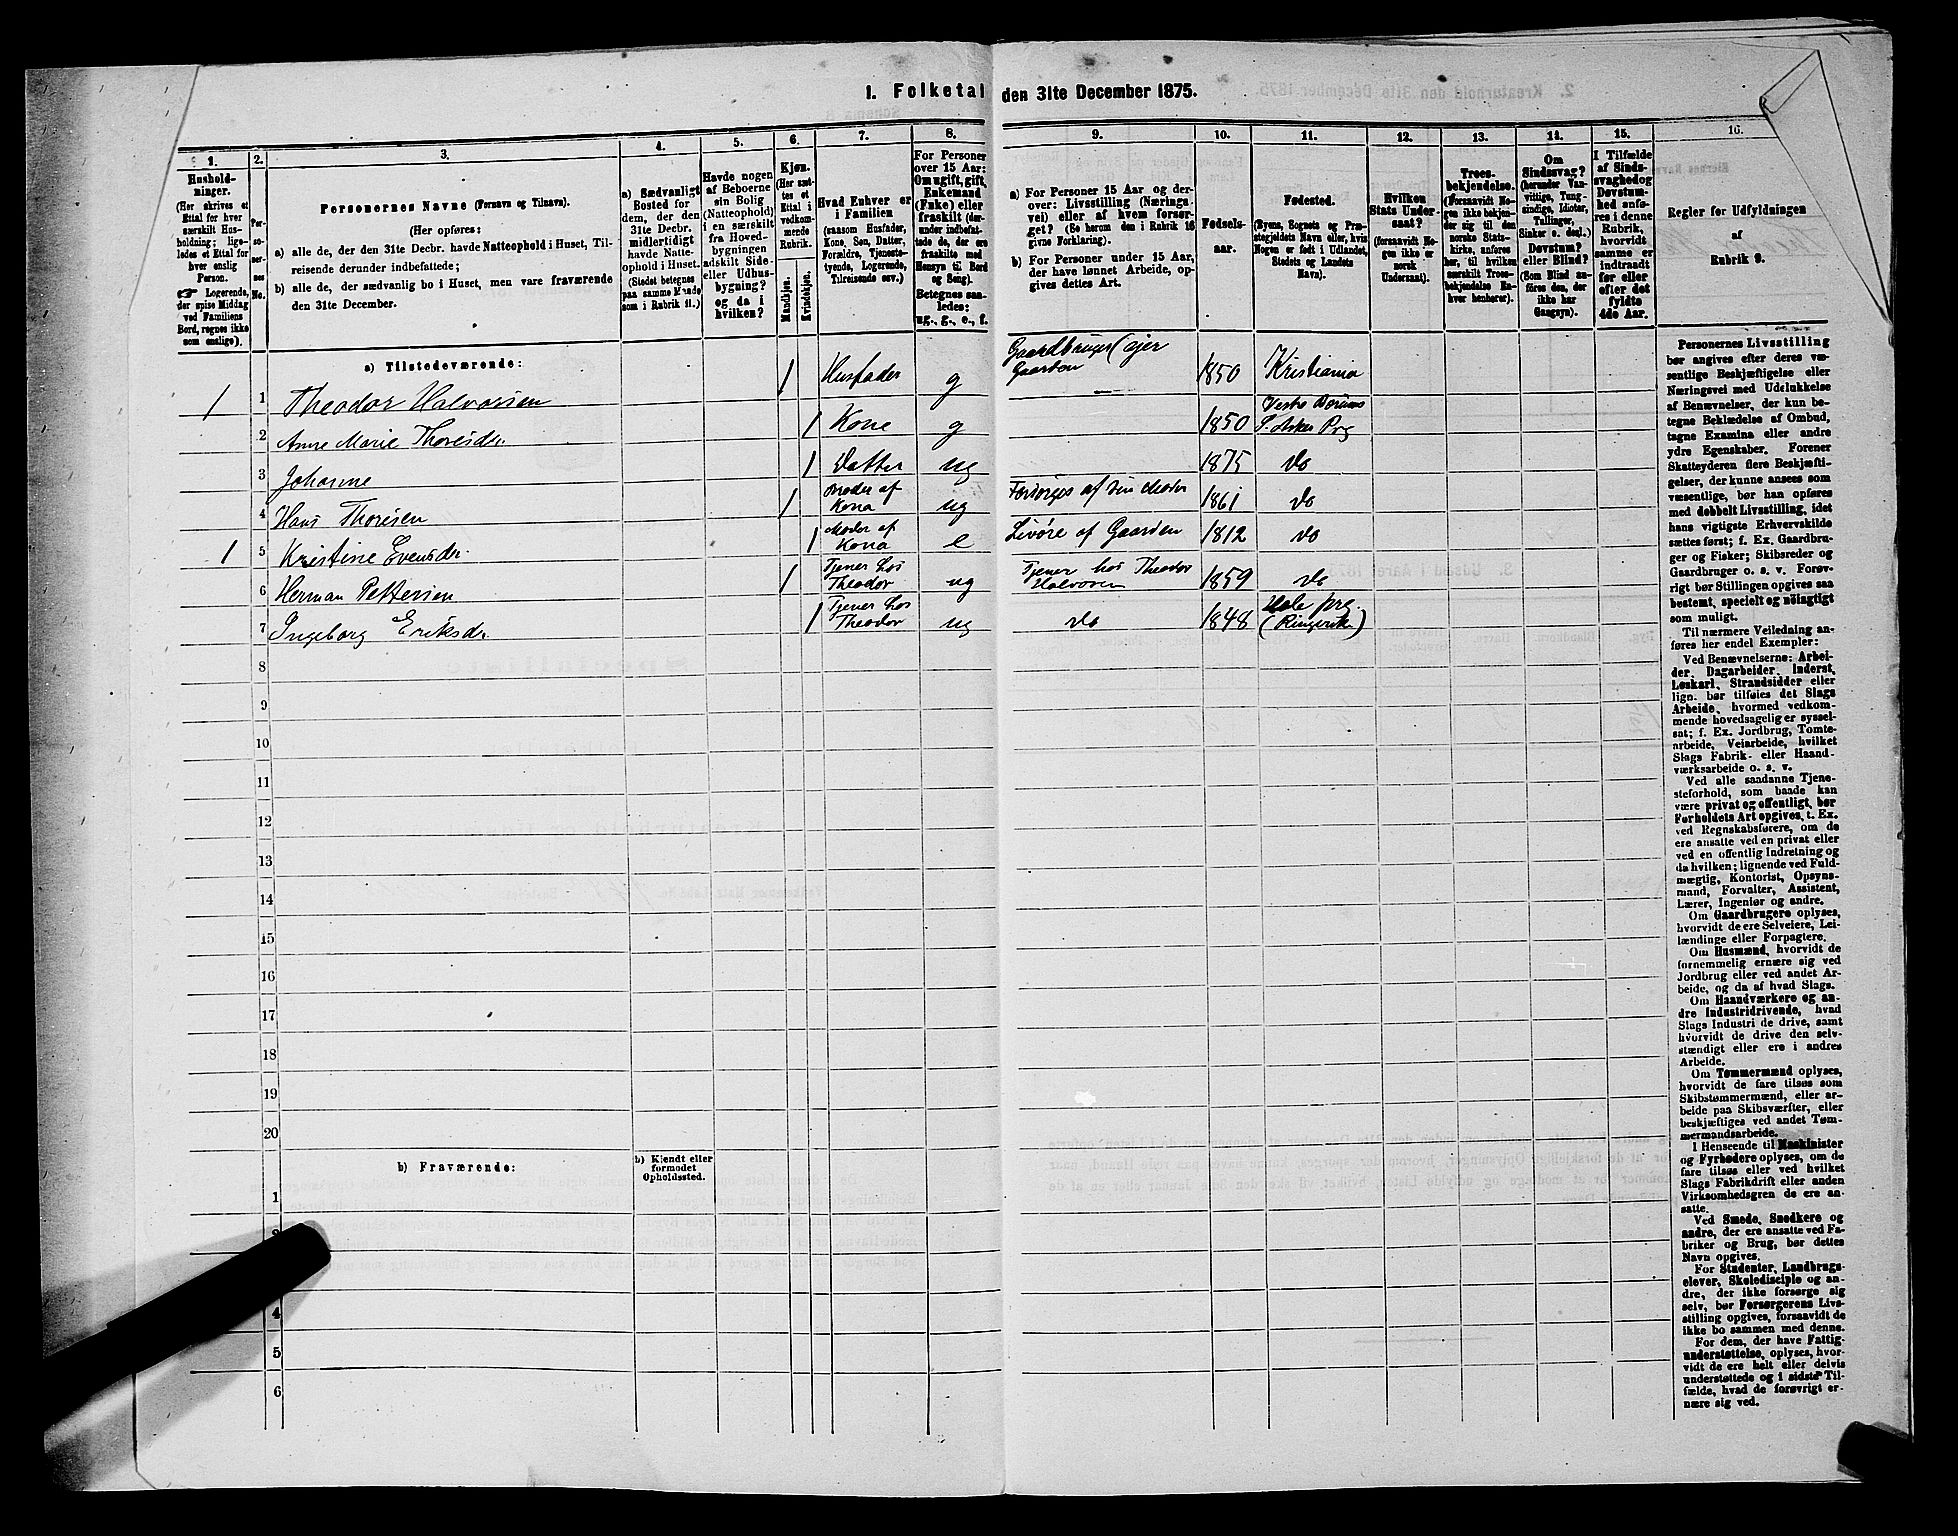 1. Folketal den 31te December 1875.
1.
2.
3.
4.
5.
6.
7.
8.
9.
10.
11.
12.
13.
14.
15.
16.
Hushold-
ninger.
(Her skrives et
Ettal for hver
særskilt Hus-
holdning; lige-
ledes et Ettal for
hver enslig
Person.
☞ Logerende,
der spise Middag
ved Familiens
Bord, regnes ikke
som enslige).
Per-
so-
ner-
nes
No.
Personernes Navne (Fornavn og Tilnavn).
(Her opføres:
a) alle de, der den 31te Decbr. havde Natteophold i Huset, Til-
reisende derunder indbefattede;
b) alle de, der sædvanlig bo i Huset, men vare fraværende
den 31te December.
a) Sædvanligt
Bosted for
dem, der den
31te Decbr.
midlertidigt
havde Natte-
ophold i Huset.
(Stedet betegnes
paa samme Maade
som i Rubrik 11.)
Havde nogen
af Beboerne
sin Bolig
(Natteophold)
i en særskilt
fra Hoved-
bygningen
adskilt Side-
eller Udhus-
bygning?
og da i
hvilken?
Kjøn.
(Her sæt-
tes et
Ettal i
vedkom-
mende
Rubrik.
Mandkjøn.
Kvindekjøn.
Hvad Enhver er
i Familien
(saasom Husfader,
Kone, Søn, Datter,
Forældre, Tjeneste-
tyende, Logerende,
Tilreisende osv.)
For Personer
over 15 Aar:
Om ugift, gift,
Enkemand
(Enke) eller
fraskilt (der-
under indbefat-
tede de, der ere
fraskilte med
Hensyn til Bord
og Seng).
Betegnes saa-
ledes:
ug., g., e., f.
a) For Personer 15 Aar og der-
over: Livsstilling (Nærings-
vei) eller af hvem forsør-
get? (Se herom den i Rubrik 16
givne Forklaring).
b) For Personer under 15 Aar,
der have lønnet Arbeide, op-
gives dettes Art.
Fødsels-
aar.
Fødested.
(Byens, Sognets og Præ-
stegjeldets Navn eller, hvis
Nogen er født i Udlandet,
Stedets og Landets
Navn).
Hvilken
Stats Under-
saat?
(forsaavidt No-
gen ikke er
norsk
Undersaat).
Troes-
bekjendelse.
(Forsaavidt No-
gen ikke bekjen-
der sig til den
norske Stats-
kirke, anfø-
res, til hvilken
særskilt Troes-
bekjendelse En-
hver henhører).
Om
Sindssvag?
(herunder Van-
vittige, Tung-
sindige, Idioter,
Tullinger,
Sinker o. desl.)
Døvstum?
eller Blind?
(Som Blind an-
føres den, der
ikke har
Gangsyn).
I Tilfælde
af Sinds-
svaghed og
Døvstum-
hed anfø-
res i denne
Rubrik,
hvorvidt
samme er
indtraadt
før eller
efter det
fyldte
4de Aar.
Regler for Udfyldningen
af
Rubrik 9.
a) Tilstedeværende:
1 1 Theodor Halvorsen 1 Husfader g Gaardbruger (ejer
Gaarden 1850 Kristiania
2 Anne Marie Thoresdr. 1 Kone g 1850 Vestre Bærums
S. Asker Prg
3 Johanne 1 Datter ug 1875 do
4 Hans Thoresen 1 Broder af
Kona ug Forsørges af sin Moder 1861 do
1 5 Kristine Evensdr. 1 Moder af
Kona e Livøre af Gaarden 1812 do
6 Herman Pettersen 1 Tjener hos
Theodor ug Tjener hos Theodor
Halvorsen 1859 do
7 Ingeborg Eriksdr. 1 Tjener hos
Theodor ug do 1848 Hole prg.
(Ringerike)
8
9
10
11
12
13
14
15
16
17
18
19
20
b) Fraværende:
b) Kjendt eller
formodet
Opholdssted.
1
4
5
6
Personernes Livsstilling
bør angives efter deres væ-
sentlige Beskjæftigelse eller
Næringsvei med Udelukkelse
af Benævnelser, der kun be-
tegne Beklædelse af Ombud,
tagne Examina eller andre
ydre Egenskaber. Forener
Skatteyderen flere Beskjæfti-
gelser, der kunne ansees som
væsentlige, bør han opføres
med dobbelt Livsstilling, idet
hans vigtigste Erhvervskilde
sættes først; f. Ex. Gaardbru-
ger og Fisker; Skibsreder og
Gaardbruger o. s. v. Forøv-
rigt bør Stillingen opgives saa
bestemt, specielt og nøiagtigt
som muligt.
Til nærmere Veiledning an-
føres her endel Exempler:
Ved Benævnelserne: Arbei-
der, Dagarbeider, Inderst,
Løskarl, Strandsidder eller
lign. bør tilføies det Slags
Arbeide, hvormed vedkom-
mende hovedsagelig er syssel-
sat; f. Ex. Jordbrug, Tomte-
arbeide, Veiarbeide, hvilket
Slags Fabrik- eller Haand-
værksarbeide o. s. v.
Ved alle saadanne Tjene-
steforhold, som baade kan
være privat og offentligt, bør
Forholdets Art opgives, t. Ex.
ved Regnskabsførere, om de
ere ansatte ved en privat eller
ved en offentlig Indretning og
da hvilken; lignende ved Fuld-
mægtig, Kontorist, Opsyns-
mand, Forvalter, Assistent,
Lærer, Ingeniør og andre.
Om Gaardbrugere oplyses,
hvorvidt de ere Selveiere, Lei-
lændinge eller Forpagtere.
Om Husmænd, hvorvidt de
fornemmelig ernære sig ved
Jordbrug eller ved andet Ar-
beide, og da af hvad Slags.
Om Haandværkere og an-
dre Industridrivende, hvad
Slags Industri de drive, samt
hvorvidt de drive den selv-
stændigt eller ere i andres
Arbeide.
Om Tømmermænd oplyses,
hvorvidt de fare tilsøs som
Skibstømmermænd, eller ar-
beide paa Skibsværfter, eller
beskjæftiges ved andet Tøm-
mermandsarbeide.
I Henseende til Maskinister
og Fyrbødere oplyses, om de
fare tilsøs eller ved hvilket
Slags Fabrikdrift eller anden
Virksomhedsgren de ere an-
satte.
Ved Smede, Snedkere og
andre, der ere ansatte ved Fa-
briker og Brug, bør dettes
Navn opgives.
For Studenter, Landbrugs-
elever, Skoledisciple og an-
dre, der ikke forsørge sig
selv, bør Forsørgerens Livs-
stilling opgives, forsaavidt de
ikke bo sammen med denne.
For dem, der have Fattig-
understøttelse, oplyses, hvor-
vidt de ere helt eller delvis
understøttede og i sidste Til-
fælde, hvad de forøvrigt er-
nære sig ved.